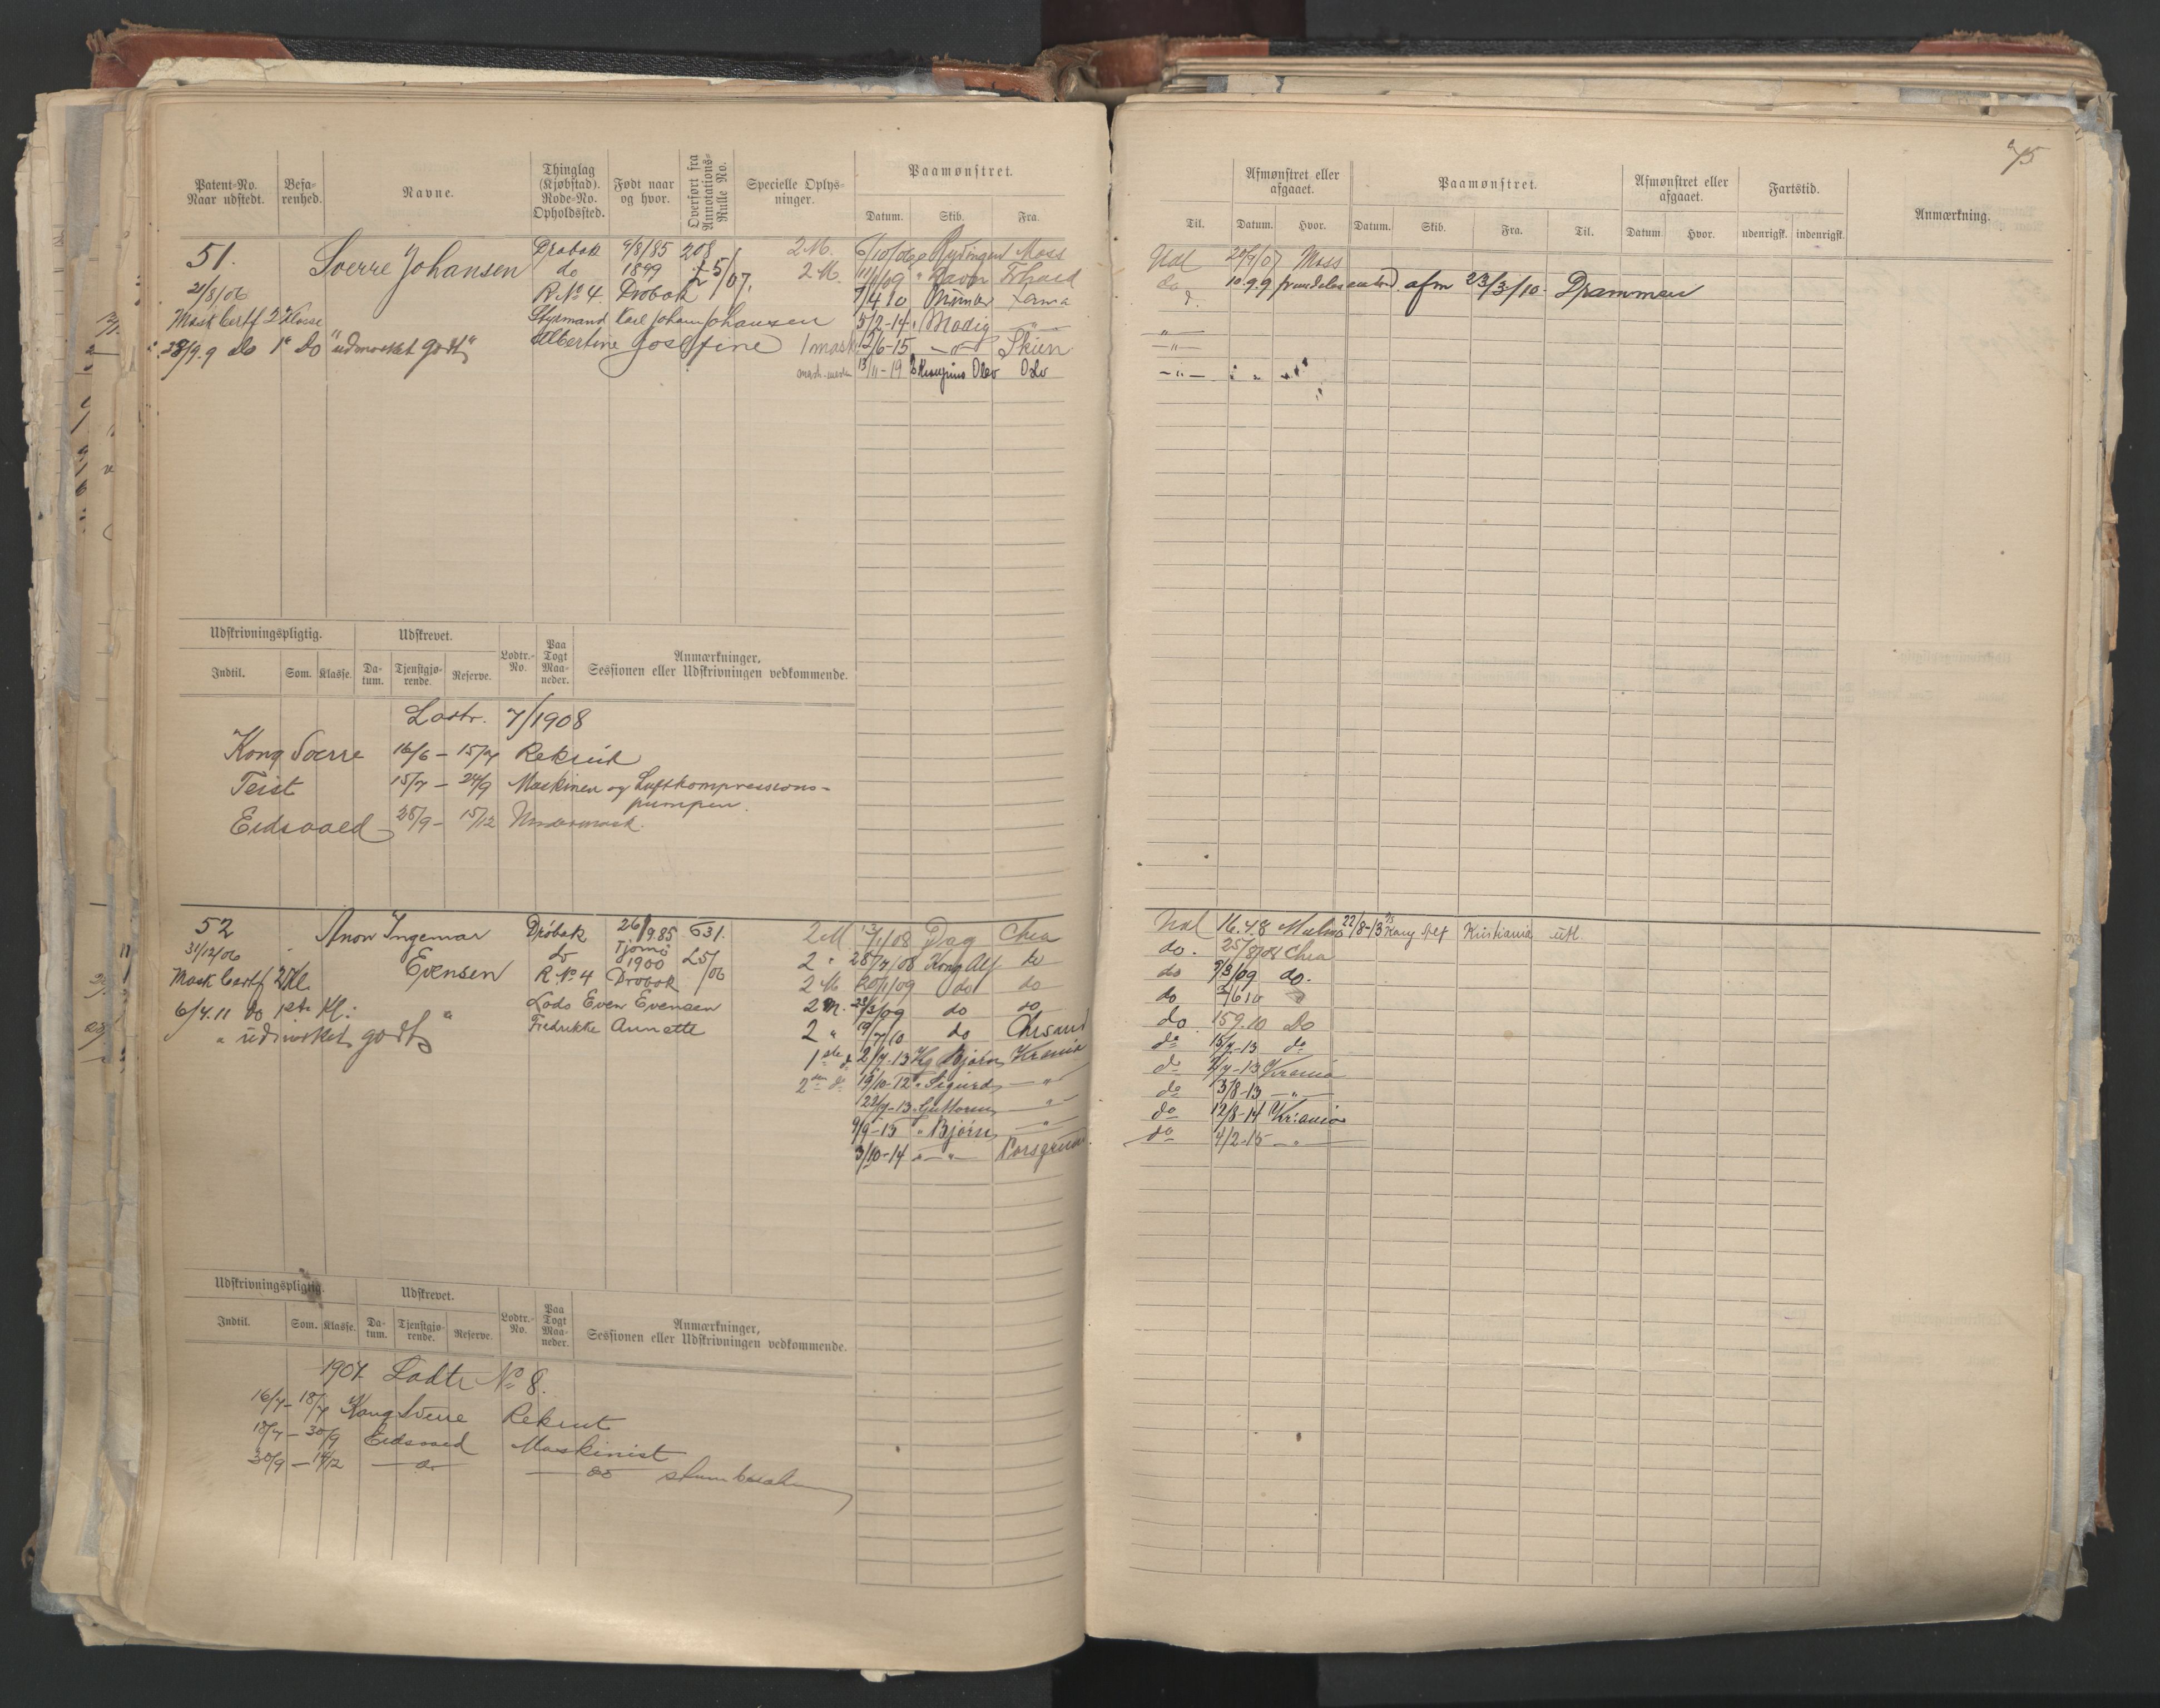 75
Patent-No. Naar udstedt.
Befarenhed.
Navne.
Thinglag (Kjøbstad). Rode-No. Opholdssted.
Født naar og hvor.
Overført fra Annotations-Rulle No.
Specielle Oplysninger.
Paamønstret.
Datum. Skib. Fra.
Til.
Afmønstret eller afgaaet.
Datum. Hvor.
Paamønstret.
Datum. Skib. Fra. Til.
Afmønstret eller afgaaet.
Datum. Hvor.
Fartstid.
udenrigsk. indenrigsk.
Anmærkning.
51. Sverre Johansen Drøbak 4/8/85 208 2M. 6/10/06 Moss
do 1899 5/07. 2 M.
21/8/06 R No 4 Drøbak 7/4 10
Mask Certf 2 Klasse Styrmand Karl Johan Johansen 5/2-14 Modig —"—
28/9.9 do 1e do "udmærket godt" Albertine Josefine 1 mask 12/6-15 —"— Skien
13/11-19 Oslo
Udl 20/9/07 Moss
do 10.9.9 afm 23/3/10. Drammen
—"—
—"—
—"—
Udskrivningspligtig. Udskrevet. Lodtr.-No. Paa Togt Maaneder. Anmærkninger, Sessionen eller Udskrivningen vedkommende.
Indtil. Som. Klasse. Datum. Tjenstgjørende. Reserve.
Lodtr. 7/1908
Kong Sverre 16/6 – 15/7 Rekrut
Teist 15/7 – 24/9 Maskinen og Luftkompressions-
pumpen.
Eidsvold 25/9 – 15/12 Undermask.
52 Anon Ingemar Drøbak 26/9.85 631. 2M. Dag Chra
31/12/06 Evensen do Tjømø 1900 L5/06 2 " 28/7/08 Kong Alf do
Mask Certf 2 Kl. R. No 4 Drøbak 2 M 20/1/09 do do
6/4.11 do 1ste Kl: Lods Even Evensen 2 M. 23/3/09 do do
" udmerket godt " Fredrikke Annette 2 " 19/7/10 do Chrsand
1ste do 2/7-13 Kg Bjørn Krania
2den do 19/10-12 " Sigurd —"—
22/7-13 Guttorm —"—
9/9-13 " Bjørn —"—
3/10-14 —"— Porsgrund
Udl 16.4.8 Malmø 22/8-13 Kong Alf Kristiania utl.
do. 25/8/08 Chra
do 9/3/09 do.
do
do 15 9.10 Do
do 15/7-13 do
do Krania
do 3/8-13 —"—
do 12/8-14 Kr:ania
do 4/2-15 —"—
Udskrivningspligtig. Udskrevet. Lodtr.-No. Paa Togt Maaneder. Anmærkninger, Sessionen eller Udskrivningen vedkommende.
Indtil. Som. Klasse. Datum. Tjenstgjørende. Reserve.
1907. Lodtr No 8.
16/7 – 18/7 Kong Sverre Rekrut
18/7 – 30/9 Eidsvold Maskinist
30/9 – 14/12 — do — — do —